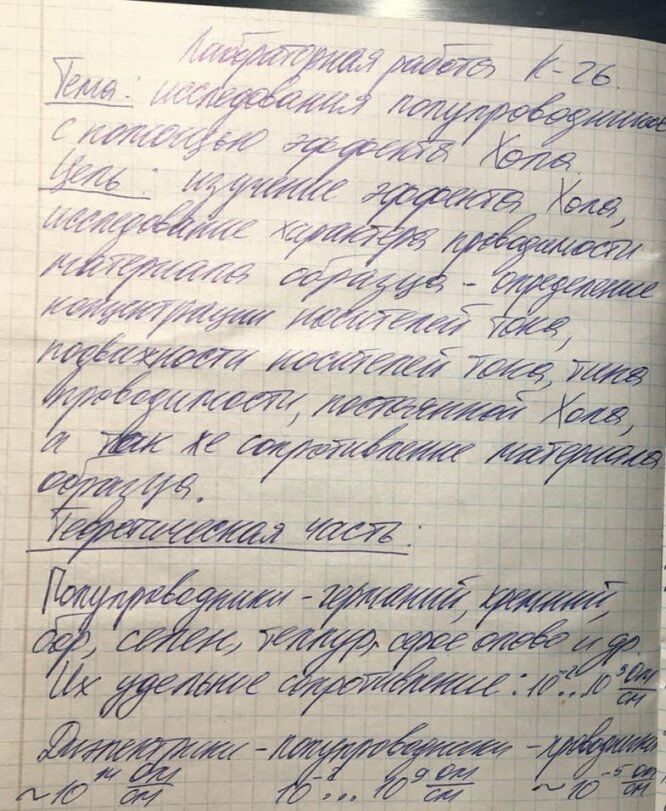 Лабораторная работа К-26.
Тема: исследования полупроводников
с помощью эффекта Холла.
Цель: изучение эффекта Холла,
исследование характера проводимости
материала образца - определение
концентрации носителей тока,
подвижности носителей тока, типа
проводимости, постоянной Холла,
а так же сопротивление материала
образца.
Теоретическая часть:
Полупроводники - германий, кремний,
бор, селен, теллур, серое олово и др.
Их удельное сопротивление: 10⁻²...10⁹ Ом/см
Диэлектрики - полупроводники - проводники
~10¹⁴ Ом/см 10⁻²...10⁹ Ом/см ~10⁻⁵ Ом/см